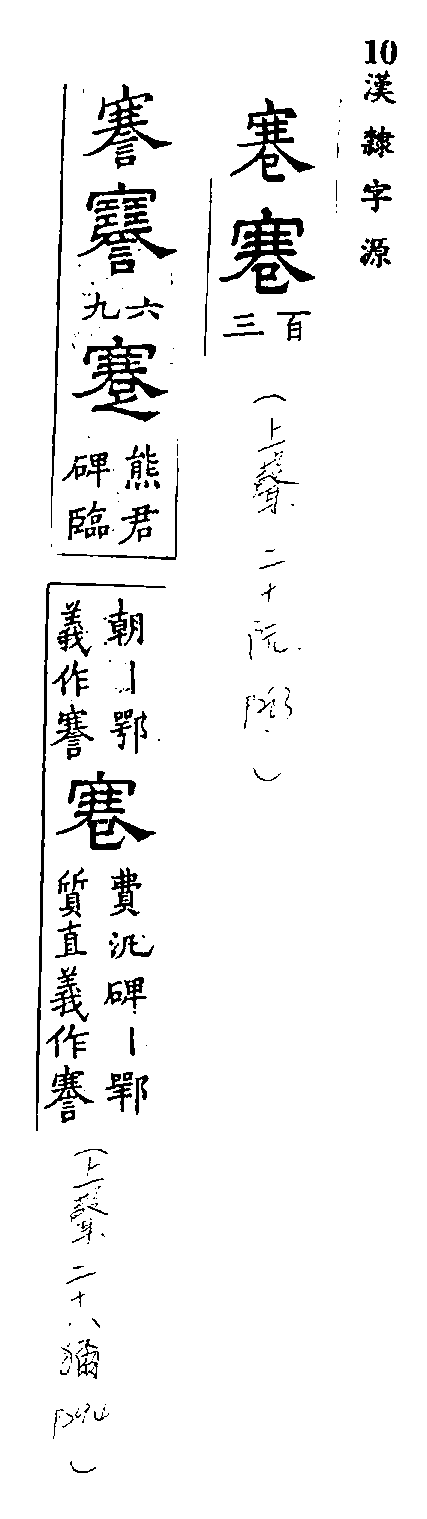 10漢隸字源
百三
(上聲二十阮
謇
六九
熊君
碑臨
朝丨鄂
義作謇
費汎碑丨鄂
質直義作謇
(上聲二十八獮 P394)